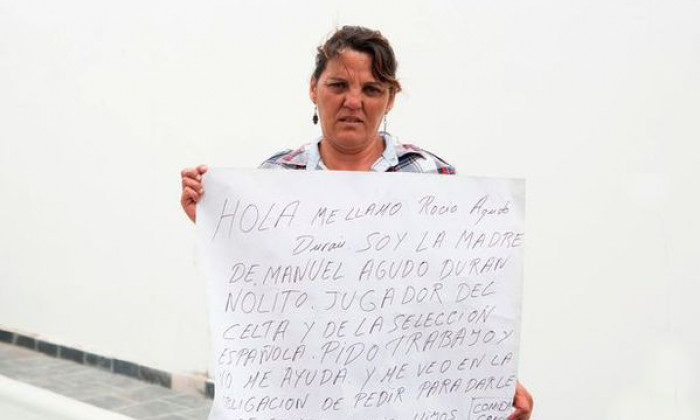 HOLA ME LLAMO Rocio Agudo
Durán SOY LA MADRE
DE MANUEL AGUDO DURAN
NOLITO. JUGADOR DEL
CELTA Y DE LA SELECCIÓN
ESPAÑOLA. PIDO TRABAJO Y
NO ME AYUDA Y ME VEO EN LA
OBLIGACION DE PEDIR PARA DARLE